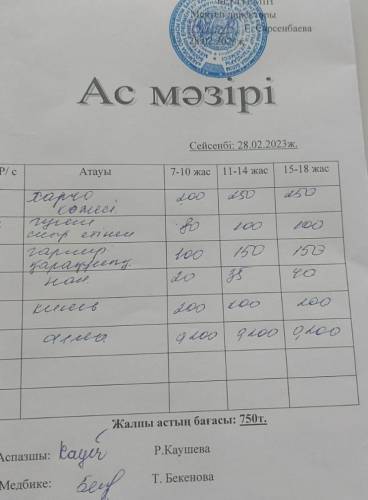 Мектеп директоры
Е. Сәрсенбаева
Ас мәзірі
Сейсенбі: 28.02.2023ж.
Р/ с Атауы 7-10 жас 11-14 жас 15-18 жас
харчо
көжесі 200 250 250
гуляш
сиыр етінен 80 100 100
гарнир
қарақұмық 100 150 150
нан 20 35 40
кисель 200 200 200
алма 0,200 0,200 0,200
Жалпы астың бағасы: 750т.
Аспазшы: Р.Каушева
Медбике: Т. Бекенова